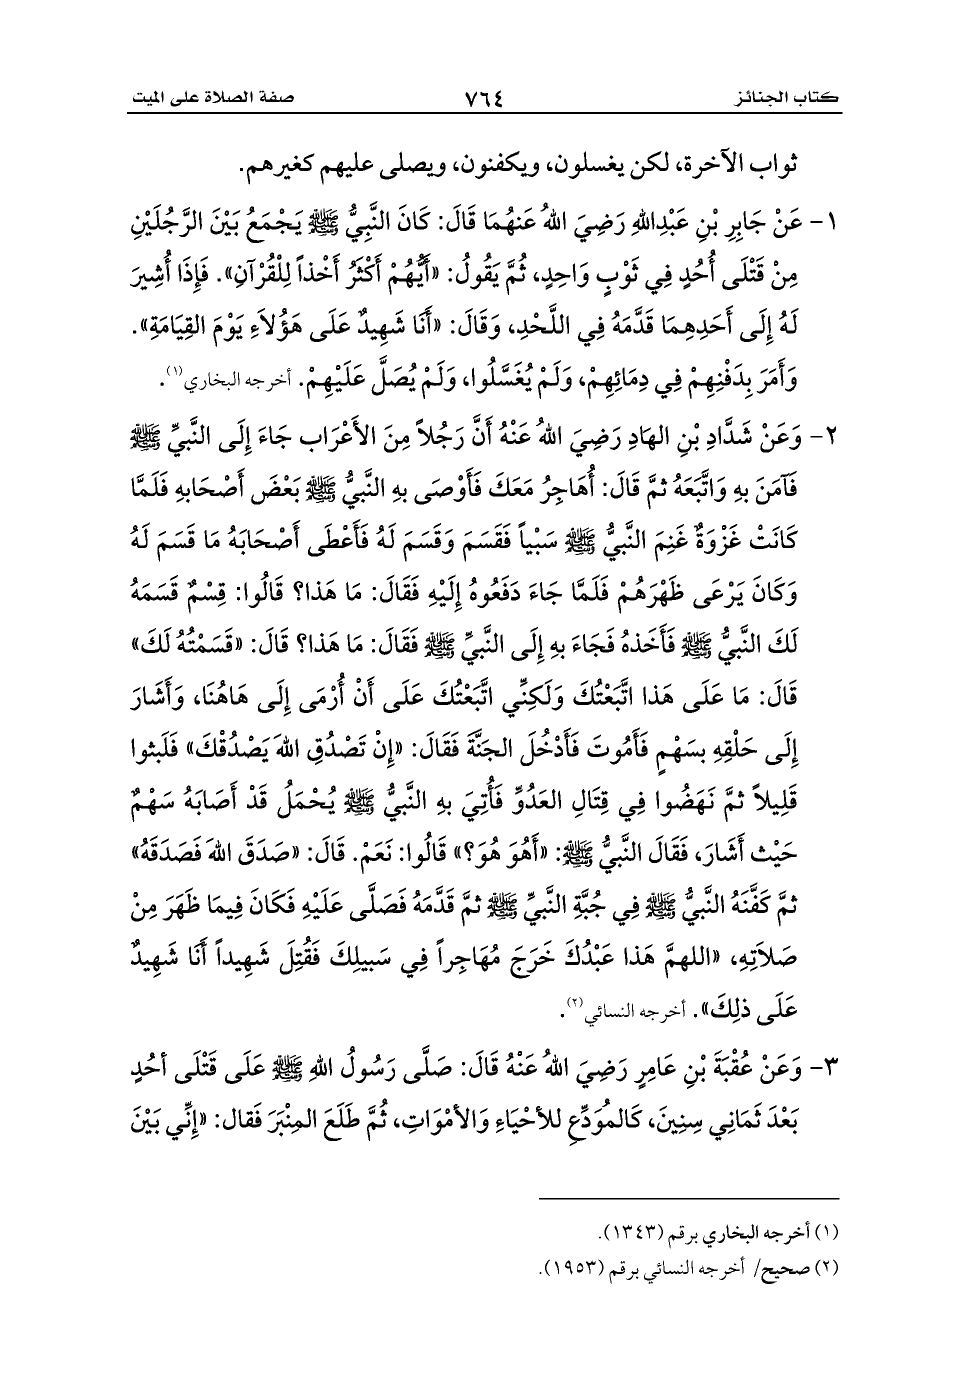 كتاب الجنائز ٧٦٤ صفة الصلاة على الميت
ثواب الآخرة، لكن يغسلون، ويكفنون، ويصلى عليهم كغيرهم.
١- عَنْ جَابِرِ بْنِ عَبْدِاللهِ رَضِيَ اللهُ عَنهُمَا قَالَ: كَانَ النَّبِيُّ ﷺ يَجْمَعُ بَيْنَ الرَّجُلَيْنِ
مِنْ قَتْلَى أُحُدٍ فِي ثَوْبٍ وَاحِدٍ، ثُمَّ يَقُولُ: «أَيُّهُمْ أَكْثَرُ أَخْذاً لِلْقُرْآنِ». فَإِذَا أُشِيرَ
لَهُ إِلَى أَحَدِهِمَا قَدَّمَهُ فِي اللَّحْدِ، وَقَالَ: «أَنَا شَهِيدٌ عَلَى هَؤُلاَءِ يَوْمَ القِيَامَةِ».
وَأَمَرَ بِدَفْنِهِمْ فِي دِمَائِهِمْ، وَلَمْ يُغَسَّلُوا، وَلَمْ يُصَلَّ عَلَيْهِمْ. أخرجه البخاري(١).
٢- وَعَنْ شَدَّادِ بْنِ الهَادِ رَضِيَ اللهُ عَنْهُ أَنَّ رَجُلاً مِنَ الأَعْرَاب جَاءَ إِلَى النَّبيِّ ﷺ
فَآمَنَ بهِ وَاتَّبَعَهُ ثمَّ قَالَ: أُهَاجِرُ مَعَكَ فَأَوْصَى بهِ النَّبيُّ ﷺ بَعْضَ أَصْحَابهِ فَلَمَّا
كَانَتْ غَزْوَةٌ غَنِمَ النَّبيُّ ﷺ سَبْياً فَقَسَمَ وَقَسَمَ لَهُ فَأَعْطَى أَصْحَابَهُ مَا قَسَمَ لَهُ
وَكَانَ يَرْعَى ظَهْرَهُمْ فَلَمَّا جَاءَ دَفَعُوهُ إِلَيْهِ فَقَالَ: مَا هَذا؟ قَالُوا: قِسْمٌ قَسَمَهُ
لَكَ النَّبيُّ ﷺ فَأَخَذهُ فَجَاءَ بهِ إِلَى النَّبيِّ ﷺ فَقَالَ: مَا هَذا؟ قَالَ: «قَسَمْتُهُ لَكَ»
قَالَ: مَا عَلَى هَذا اتَّبَعْتُكَ وَلَكِنِّي اتَّبَعْتُكَ عَلَى أَنْ أُرْمَى إِلَى هَاهُنَا، وَأَشَارَ
إِلَى حَلْقِهِ بسَهْمٍ فَأَمُوتَ فَأَدْخُلَ الجَنَّةَ فَقَالَ: «إِنْ تَصْدُقِ اللهَ يَصْدُقْكَ» فَلَبثوا
قَلِيلاً ثمَّ نَهَضُوا فِي قِتَالِ العَدُوِّ فَأُتِيَ بهِ النَّبيُّ ﷺ يُحْمَلُ قَدْ أَصَابَهُ سَهْمٌ
حَيْث أَشَارَ، فَقَالَ النَّبيُّ ﷺ: «أَهُوَ هُوَ؟» قَالُوا: نَعَمْ. قَالَ: «صَدَقَ اللهَ فَصَدَقَهُ»
ثمَّ كَفَّنَهُ النَّبيُّ ﷺ فِي جُبَّةِ النَّبيِّ ﷺ ثمَّ قَدَّمَهُ فَصَلَّى عَلَيْهِ فَكَانَ فِيمَا ظَهَرَ مِنْ
صَلاَتِهِ، «اللهمَّ هَذا عَبْدُكَ خَرَجَ مُهَاجِراً فِي سَبيلِكَ فَقُتِلَ شَهِيداً أَنَا شَهِيدٌ
عَلَى ذلِكَ». أخرجه النسائي(٢).
٣- وَعَنْ عُقْبَةَ بْنِ عَامِرٍ رَضِيَ اللهُ عَنْهُ قَالَ: صَلَّى رَسُولُ اللهِ ﷺ عَلَى قَتْلَى أحُدٍ
بَعْدَ ثَمَانِي سِنِينَ، كَالمُوَدِّعِ للأحْيَاءِ وَالأمْوَاتِ، ثُمَّ طَلَعَ المِنْبَرَ فَقال: «إِنِّي بَيْنَ
(١) أخرجه البخاري برقم (١٣٤٣).
(٢) صحيح/ أخرجه النسائي برقم (١٩٥٣).